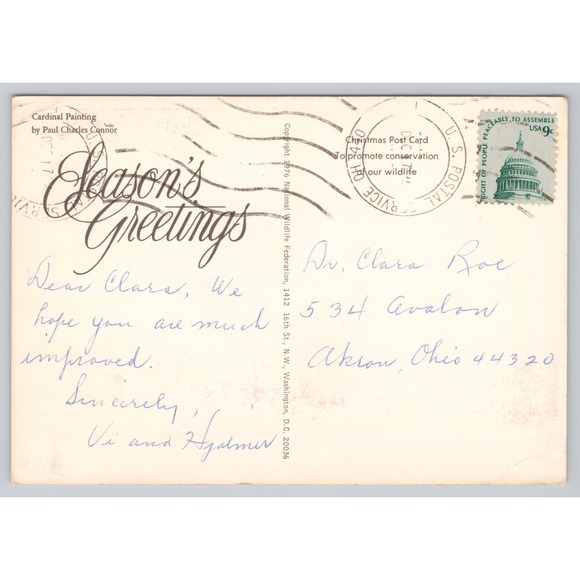 Cardinal Painting
by Paul Charles Connor
Season's
Greetings
Dear Clara, We
hope you are much
improved.
Sincerely,
Vi and Hjalmer
Copyright 1976 National Wildlife Federation, 1412 16th St., N.W., Washington, D.C. 20036
Christmas Post Card
To promote conservation
of our wildlife
U.S. POSTAL SERVICE OH 440
DEC 17
RIGHT OF PEOPLE PEACEABLY TO ASSEMBLE
USA 9c
Dr. Clara Roe
534 Avalon
Akron, Ohio 44320